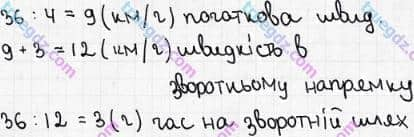 36 : 4 = 9 (км/г) початкова швид.
9 + 3 = 12 (км/г) швидкість в
зворотньому напрямку
36 : 12 = 3 (г) час на зворотній шлях